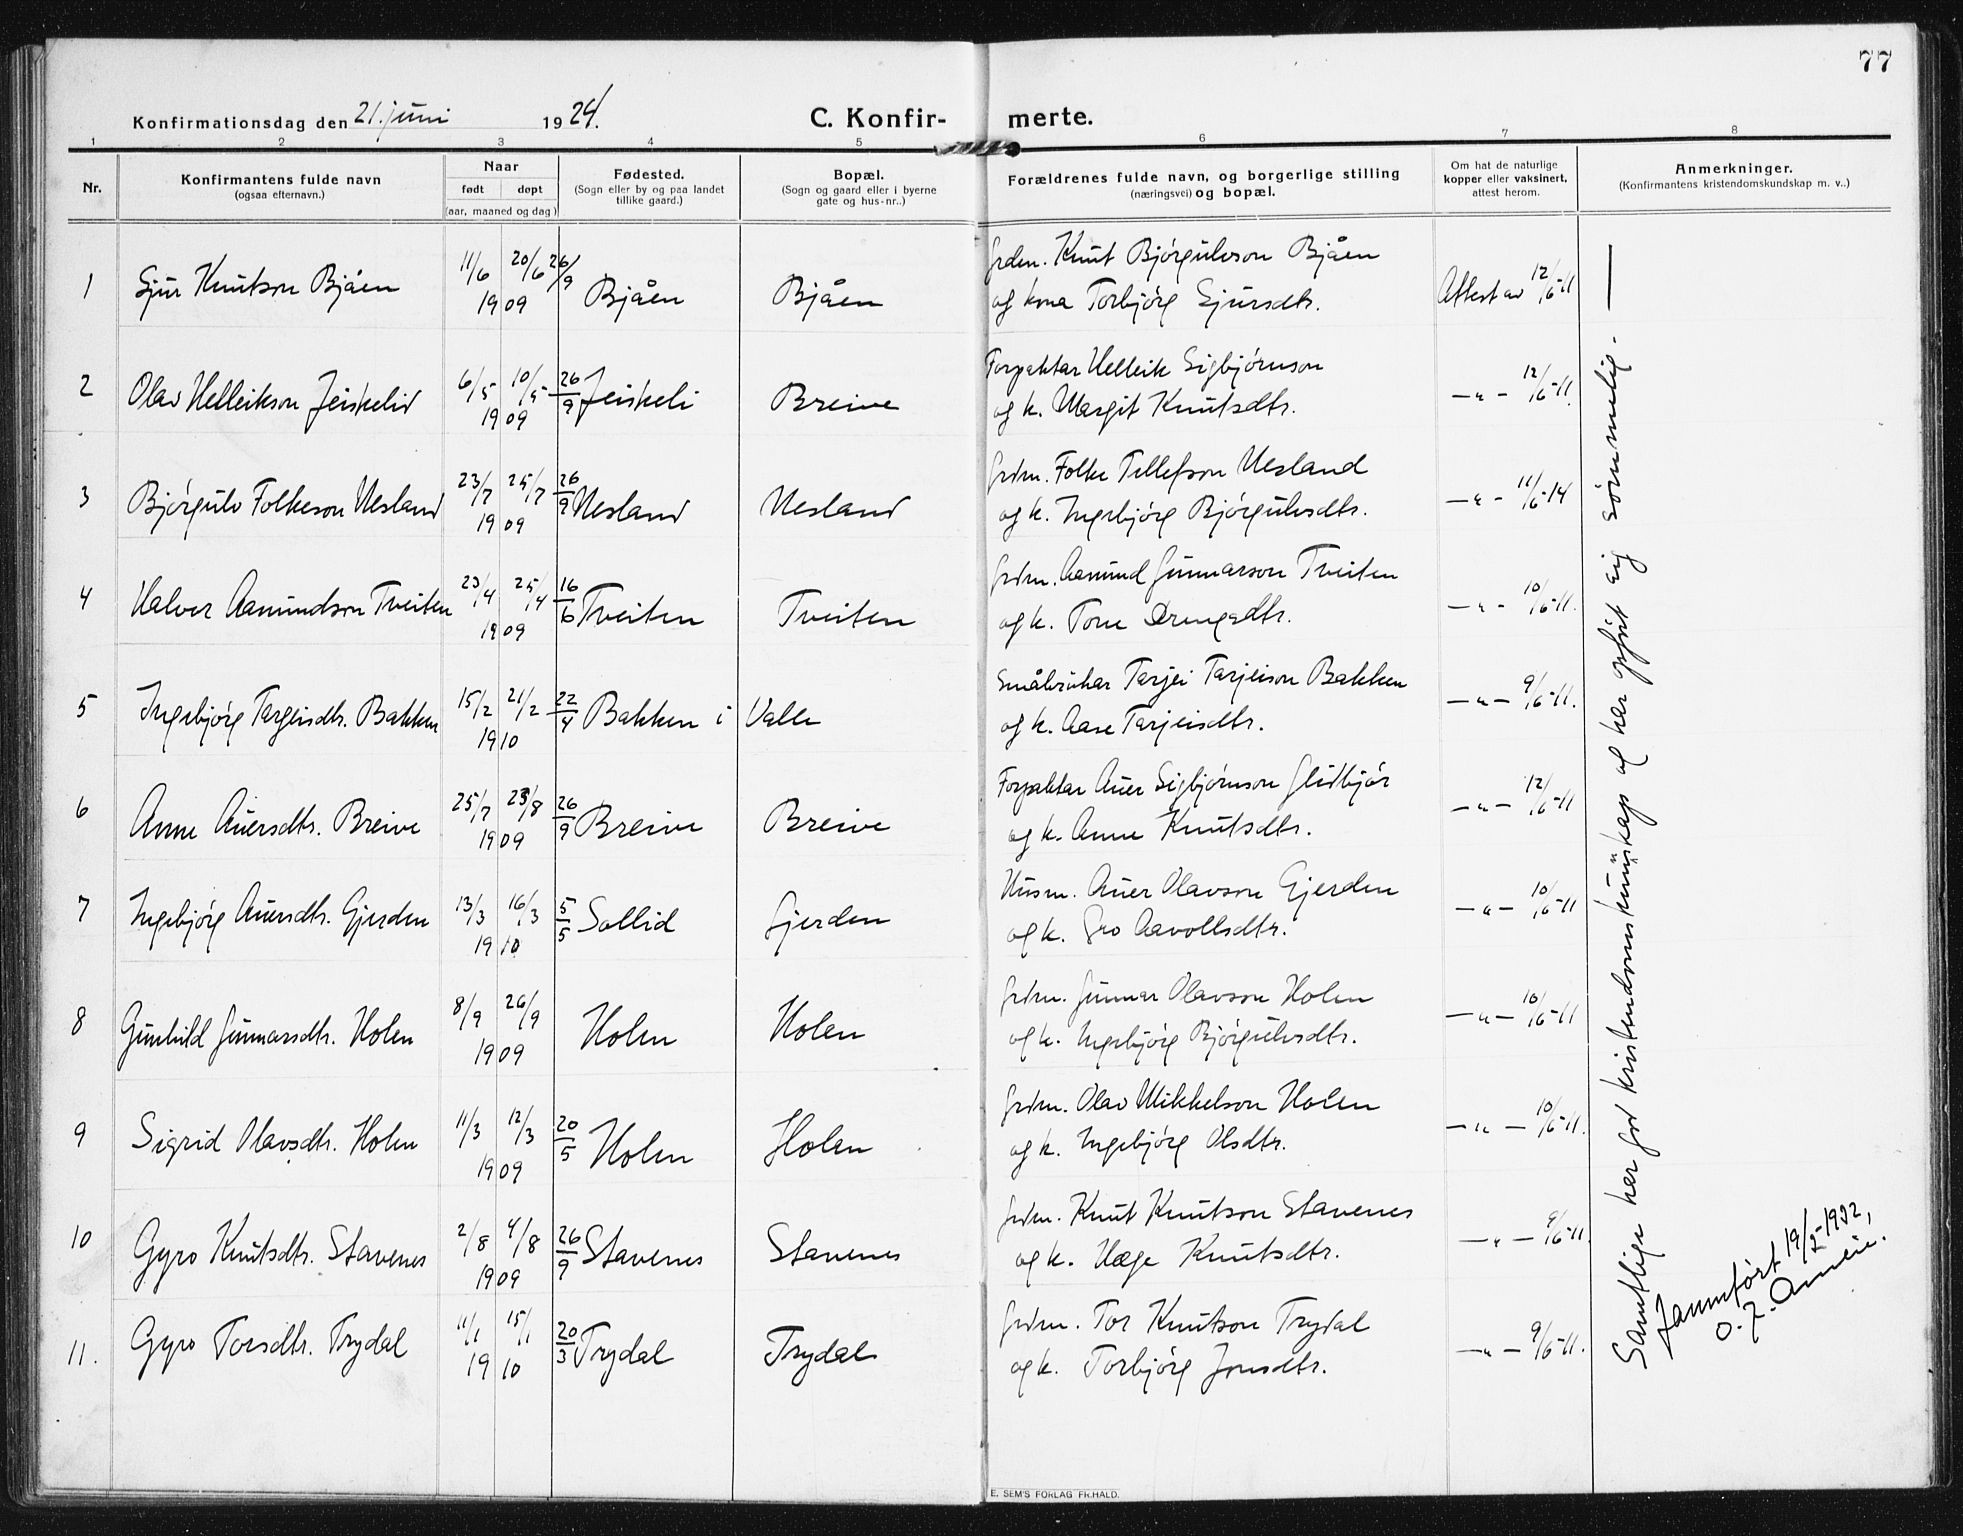 77
Konfirmationsdag den 21. juni 1924. C. Konfir- merte.
1 2 3 4 5 6 7 8
Nr. Konfirmantens fulde navn (ogsaa efternavn.) Naar født døpt (aar, maaned og dag) Fødested. (Sogn eller by og paa landet tillike gaard.) Bopæl. (Sogn og gaard eller i byerne gate og hus-nr..) Forældrenes fulde navn, og borgerlige stilling (næringsvei) og bopæl. Om hat de naturlige kopper eller vaksinert, attest herom. Anmerkninger. (Konfirmantens kristendomskundskap m. v..)
1 Sjur Knutson Bjåen 11/6 20/6 26/9 1909 Bjåen Bjåen Grdm. Knut Bjørgulvson Bjåen
og kona Torbjørg Sjursdtr. Attest av 12/6-11
2 Olav Helleikson Jeiskelid 6/5 10/5 26/9 1909 Jeiskeli Breive Forpaktar Helleik Sigbjørnson
og k. Margit Knutsdtr. —"— 12/6-11.
3 Bjørgulv Folkeson Nesland 23/7 25/7 26/9 1909 Nesland Nesland Grdm. Folke Tellefson Nesland
og k. Ingebjørg Bjørgulvsdtr. —"— 11/6-14
4 Halvor Aamundson Tveiten 23/4 25/4 16/6 1909 Tveiten Tveiten Grdm. Aamund Gunnarson Tveiten
og k. Tone Drengsdtr. —"— 10/6-11.
5 Ingebjørg Targeisdtr. Bakken 15/2 21/2 22/4 1910 Bakken i Valle Småbrukar Tarjei Tarjeison Bakken
og k. Aase Tarjeisdtr. —"— 9/6-11.
6 Anne Auersdtr. Breive 25/7 23/8 26/9 1909 Breive Breive Forpaktar Auer Sigbjørnson Glidbjør
og k. Anne Knutsdtr. —"— 12/6-11
7 Ingebjørg Auersdtr. Gjerden 13/3 16/3 5/5 1910 Sollid Gjerden Husm. Auer Olavson Gjerden
og k. Gro Aavollsdtr. —"— 10/6-11
8 Gunhild Gunnarsdtr. Holen 8/9 26/9 1909 Holen Holen Grdm. Gunnar Olavson Holen
og k. Ingebjørg Bjørgulvsdtr. —"— 10/6-11
9 Sigrid Olavsdtr. Holen 11/3 12/3 20/5 1909 Holen Holen Grdm. Olav Mikkelson Holen
og k. Ingebjørg Olsdtr. —"— 10/6-11.
10 Gyro Knutsdtr. Stavenes 2/8 4/8 26/9 1909 Stavenes Stavenes Grdm. Knut Knutson Stavenes
og k. Hæge Knutsdtr. —"— 9/6-11.
11. Gyro Torsdtr. Trydal 11/1 15/1 20/3 1910 Trydal Trydal Grdm. Tor Knutson Trydal
og k. Torbjørg Jonsdtr. —"— 9/6-11.
Samtlige har god kristendomskunnskaps og har opført sig sømmelig. —
Jamnført 19/2-1932,
O. J. Aneie.
E. SEM'S FORLAG FR.HALD.